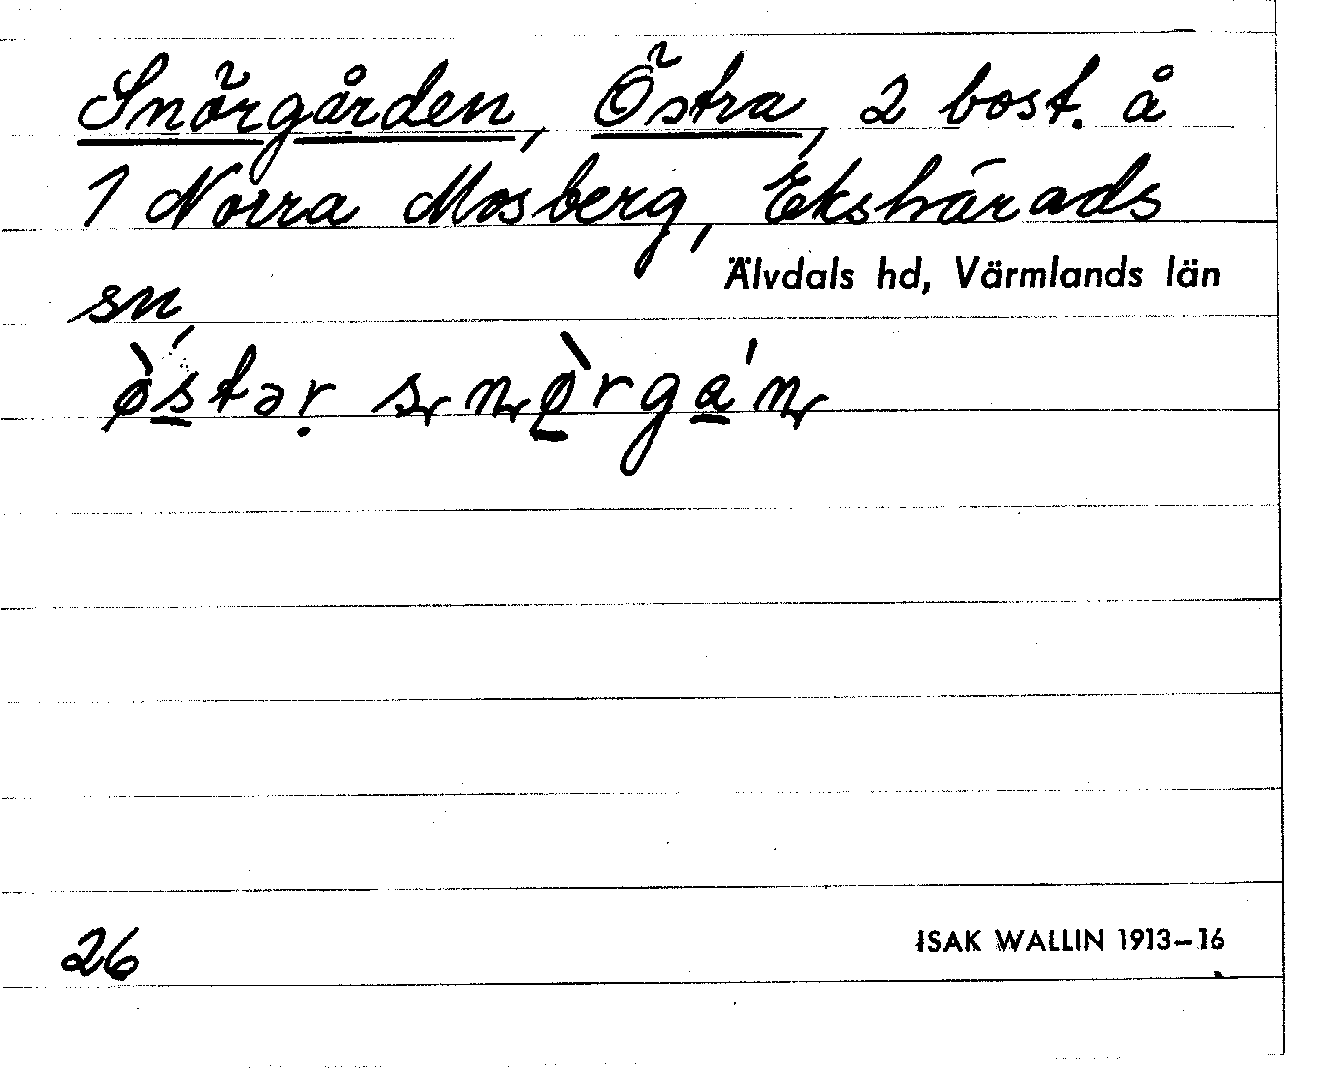 Snörgården, Östra, 2 bost. å
1 Norra Mosberg, Ekshärads
sn,
Älvdals hd, Värmlands län
ø̀stər snø̀rga'n
26
ISAK WALLIN 1913–16